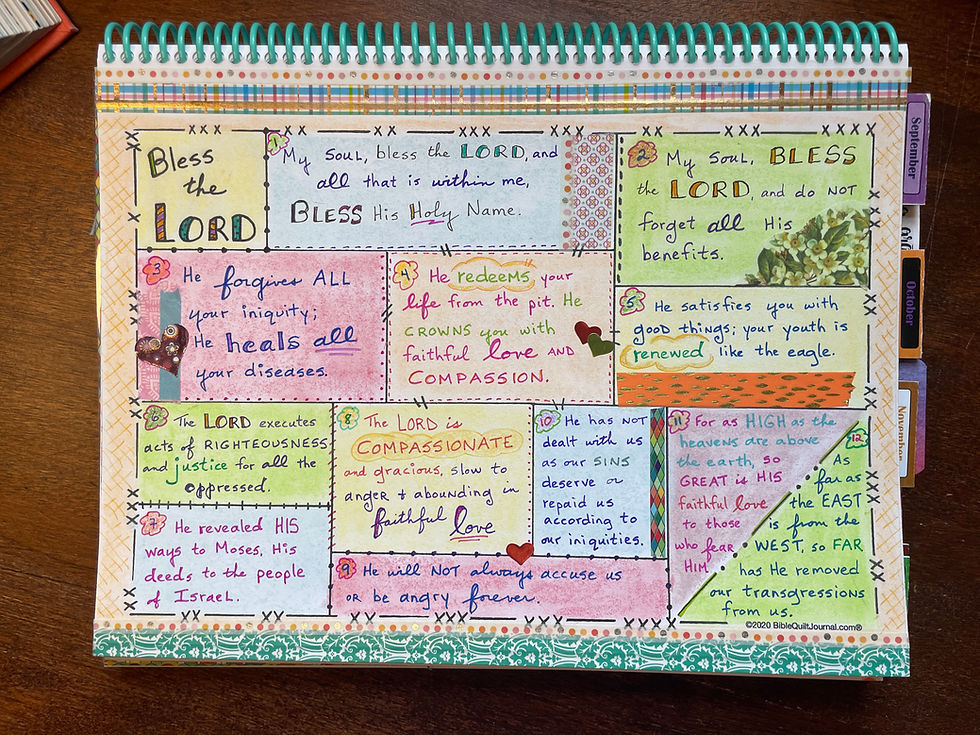 Bless
the
LORD
1
My soul, bless the LORD, and
all that is within me,
BLESS His Holy Name.
2
My soul, BLESS
the LORD, and do NOT
forget all His
benefits.
3
He forgives ALL
your iniquity;
He heals all
your diseases.
4
He redeems your
life from the pit. He
CROWNS you with
faithful love AND
COMPASSION.
5
He satisfies you with
good things; your youth is
renewed like the eagle.
6
The LORD executes
acts of RIGHTEOUSNESS
and justice for all the
oppressed.
7
He revealed HIS
ways to Moses, His
deeds to the people
of ISRAEL.
8
The LORD is
COMPASSIONATE
and gracious, slow to
anger & abounding in
faithful love
9
He will NOT always accuse us
OR be angry forever.
10
He has NOT
dealt with us
as our SINS
deserve or
repaid us
according to
our iniquities.
11
For as HIGH as the
heavens are above
the earth, so
GREAT is HIS
faithful love
to those
who fear
HIM.
12
As
far as
the EAST
is from the
WEST, so FAR
has He removed
our transgressions
from us.
©2020 BibleQuiltJournal.com®
September
October
November